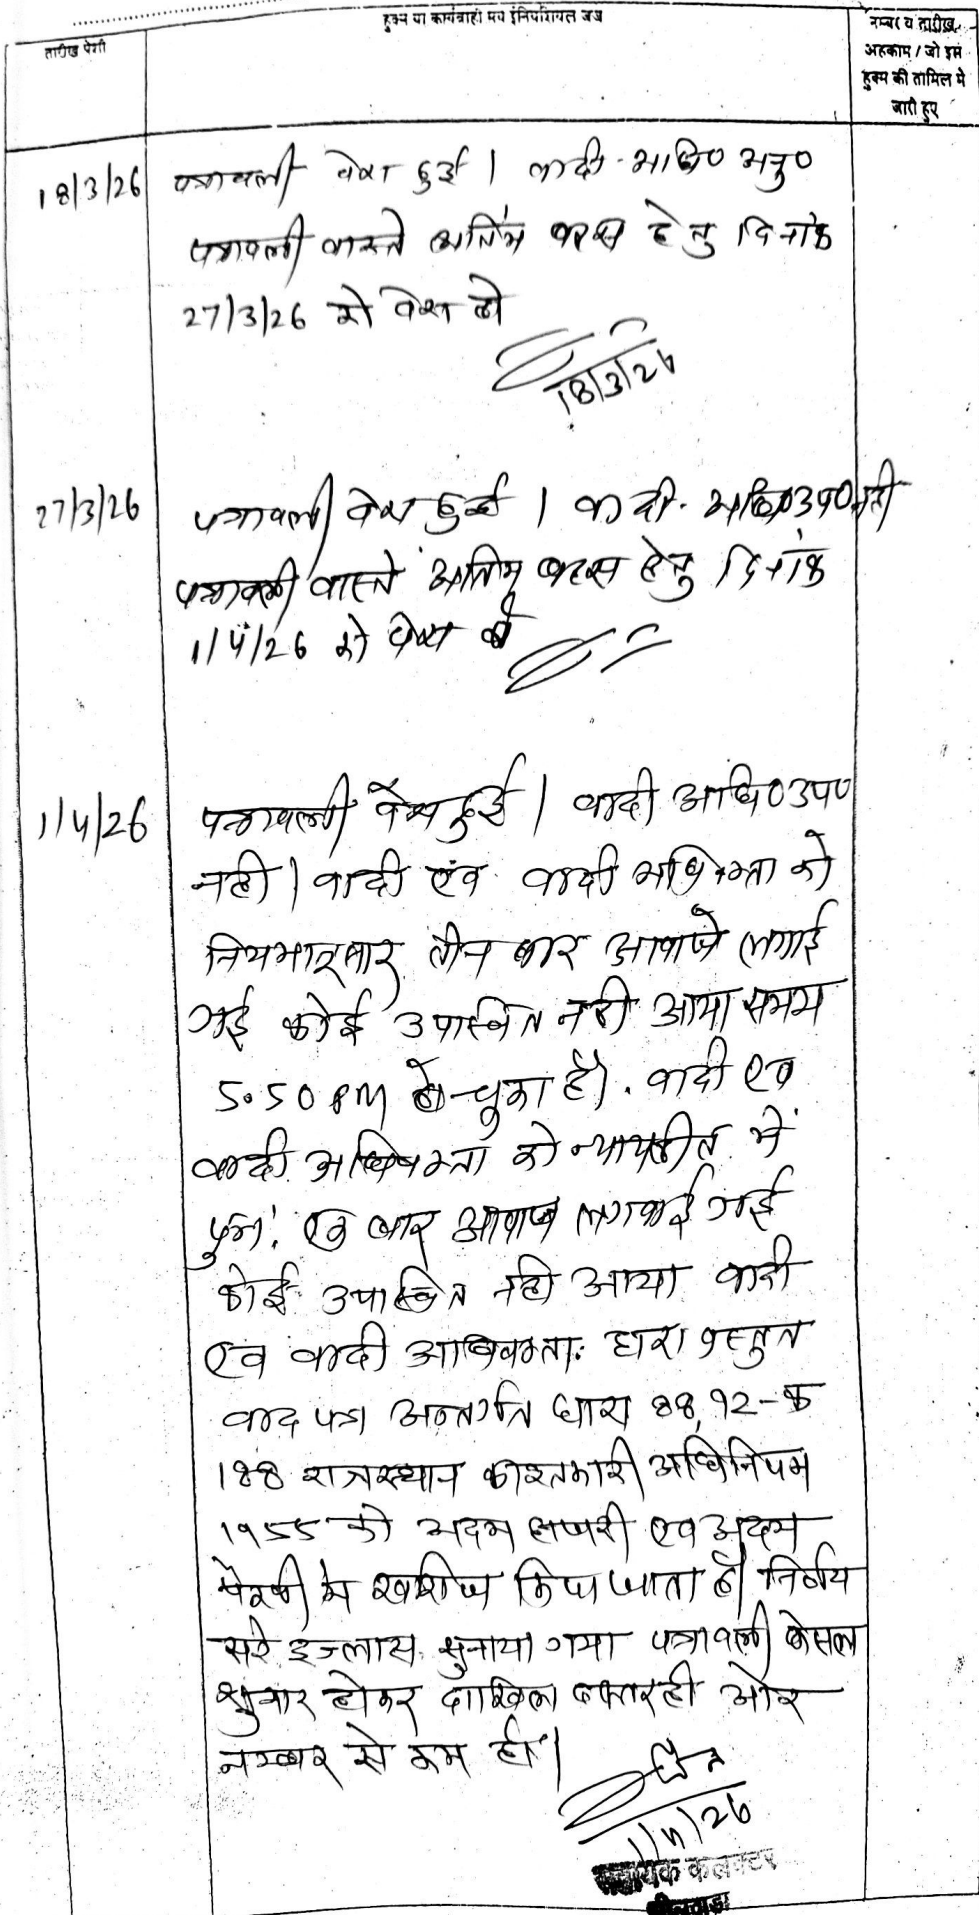 हुक्म या कार्यवाही मय इनिशियल जज
तारीख पेशी
नम्बर व तारीख
अहकाम / जो इस
हुक्म की तामिल में
जारी हुए
18/3/26 पत्रावली पेश हुई । वादी अधि० अनु०
पत्रावली वास्ते अंतिम बहस हेतु दिनांक
27/3/26 को पेश हो
18/3/26
27/3/26 पत्रावली पेश हुई । वादी अधि० उप० नही
पत्रावली वास्ते अंतिम बहस हेतु दिनांक
1/4/26 को पेश हो
1/4/26 पत्रावली पेश हुई । वादी अधि० उप०
नही । वादी एंव वादी अधिवक्ता को
नियमानुसार तीन बार आवाजे लगाई
गई कोई उपस्थित नही आया समय
5.50 PM हो चुका है। वादी एव
वादी अधिवक्ता को न्यायहीत में
पुन: एक बार आवाज लगवाई गई
कोई उपस्थित नही आया वादी
एव वादी अधिवक्ता द्वारा प्रस्तुत
वाद पत्र अन्तर्गत धारा 88, 92-क
188 राजस्थान काश्तकारी अधिनियम
1955 को अदम हाजरी एव अदम
पैरवी मे खारीज किया जाता है। निर्णय
सरे इजलास सुनाया गया पत्रावली फेसल
शुमार होकर दाखिल दफ्तर हो और
नम्बर से कम हो।
1/4/26
सहायक कलक्टर
भीलवाड़ा